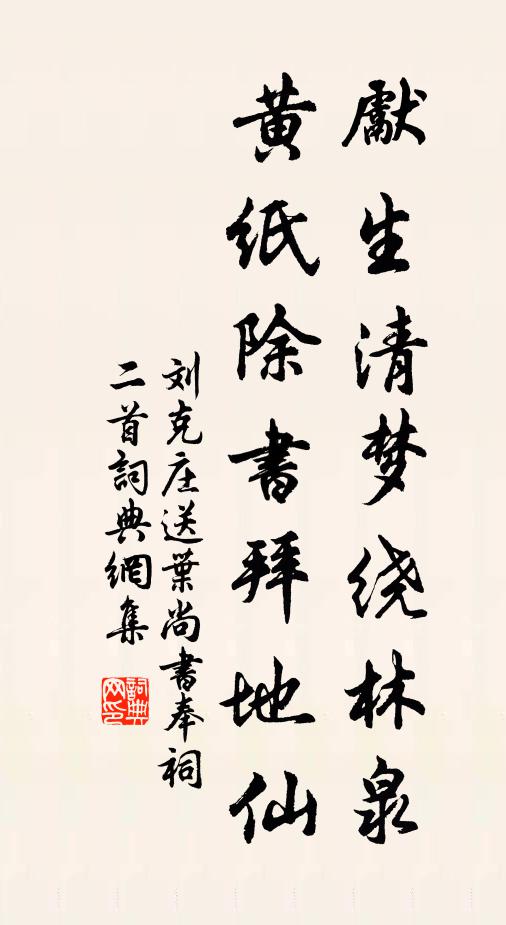 獻生清梦绕林泉
黄纸除書拜地仙
刘克庄送葉尚書奉祠
二首詞典網集
詞典
网印